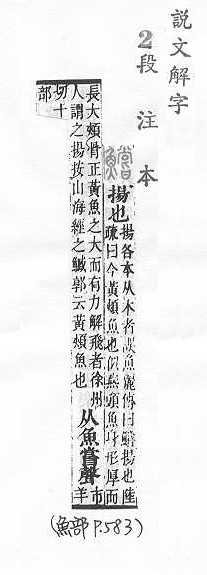 説文解字
2段 注 本
鱨
揚也
揚各本从木者誤魚麗傳曰鱨揚也陸
疏曰今黃頰魚也似燕頭魚身形厚而
長大頰骨正黃魚之大而有力解飛者徐州
人謂之揚按山海經之鱤郭云黃頰魚也
从魚嘗聲
市
羊
切十
部
(魚部 P.583)